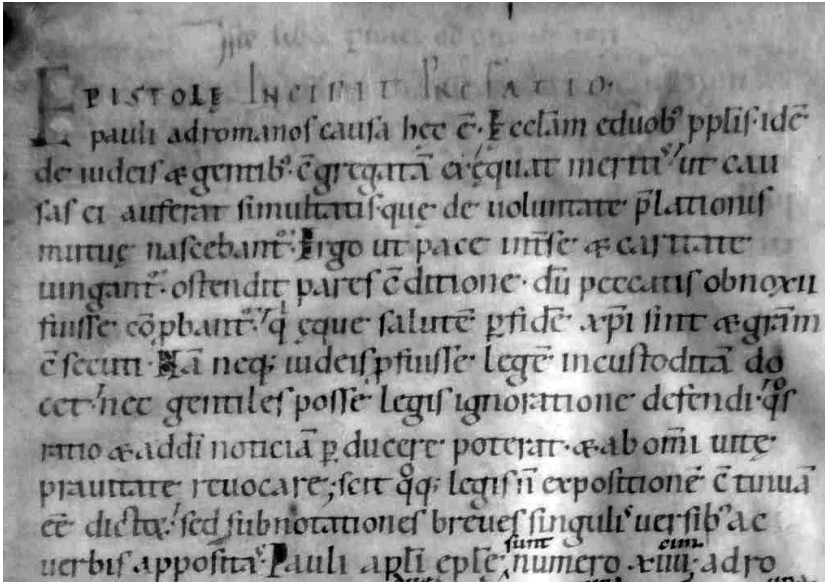 EPISTOLĘ INCIPIT PREFATIO·
pauli adromanos causa hęc ē̄· Ecclām eduob⁹ pplīs· idē
de iudeis & gentib⁹ c̄gregatā exęquat meritis ut cau
sas ei auferat simultatis quę de uoluntate p̄lationis
mutuę nascebant᷑· Ergo ut pace int̄ se & caritate
iungant᷑· ostendit pares c̄ditione· dū peccatis obnoxii
fuisse cōpbant᷑· q' ęque salutē p̱ fidē xp̄i sint & grām
c̄secuti· Nā neq; iudeis p̱fuisse legē incustoditā do
cet· nec gentiles posse legis ignoratione defendi· q̊s
ratio & addī noticiā p̱ducere poterat· & ab om̄i uitę
prauitate reuocare; scit q̊q; legis n̄ expositionē c̄tinuā
eē dictā· sed subnotationes breues singulis uersib⁹ ac
uerbis apposita᷑· Pauli apl̄i epl̄ę sunt numero xiiii· adro